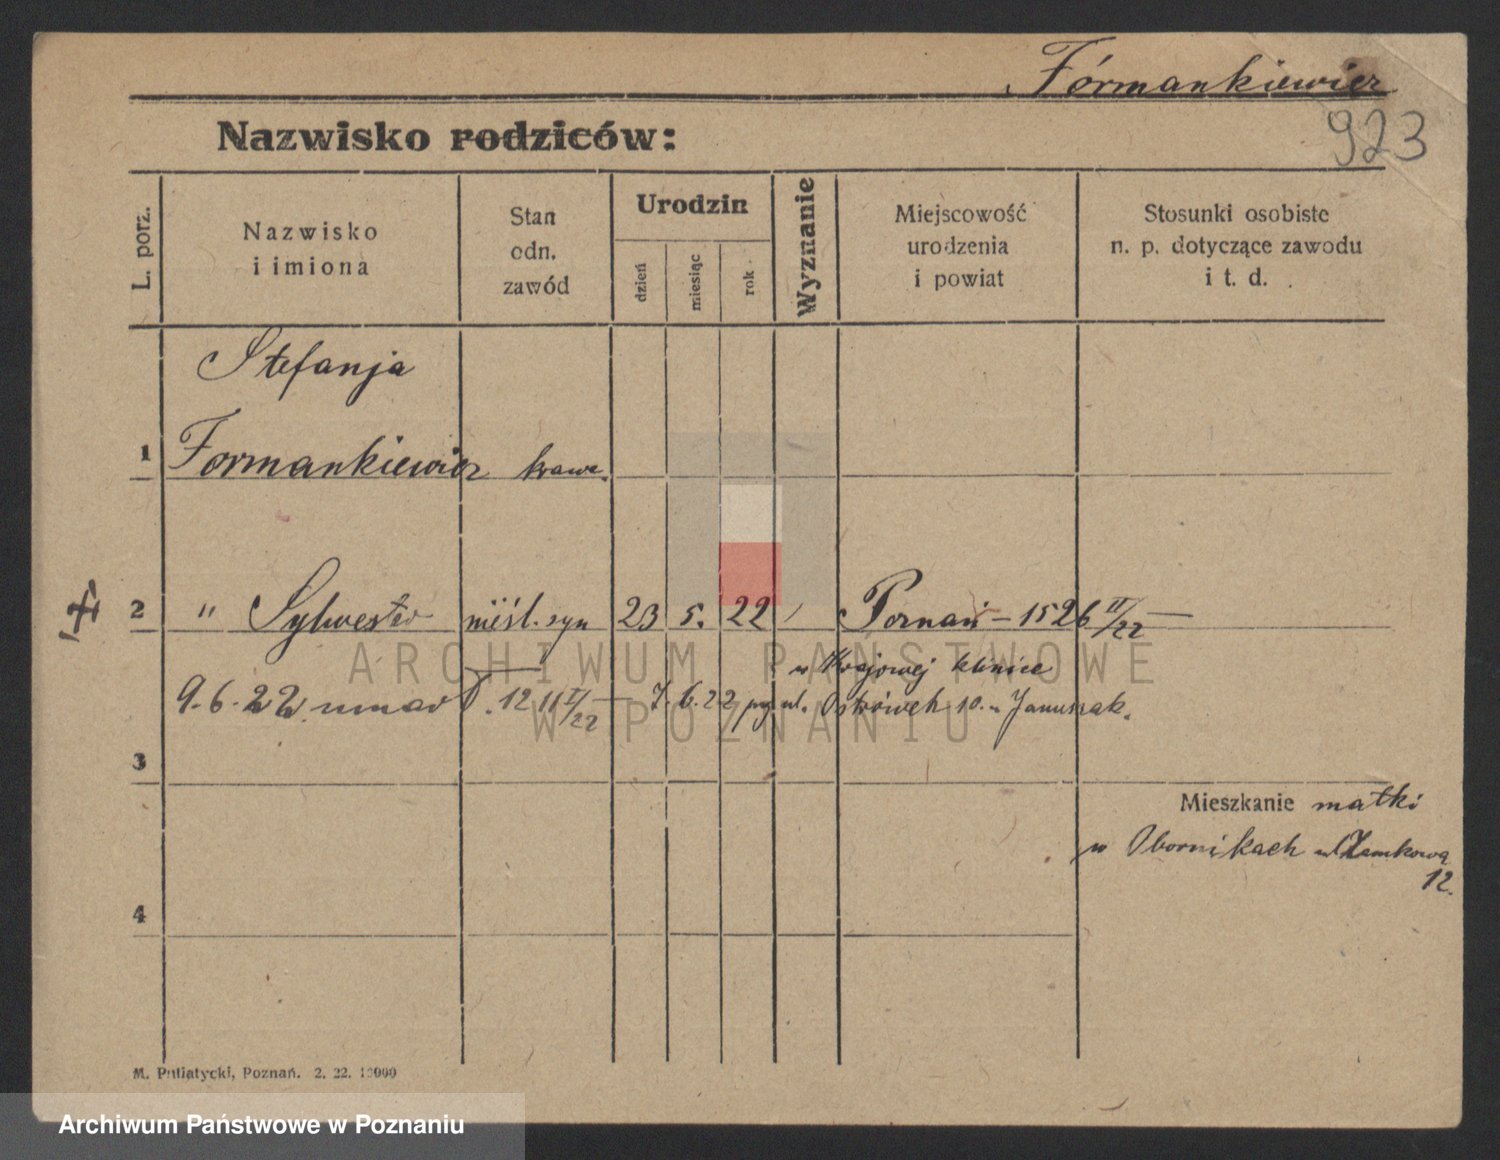 Formankiewicz
923
Nazwisko rodziców:
L. porz.
Nazwisko
i imiona
Stan
odn.
zawód
Urodzin
dzień
miesiąc
rok
Wyznanie
Miejscowość
urodzenia
i powiat
Stosunki osobiste
n. p. dotyczące zawodu
i t. d.
Stefanja
1 Formankiewicz krawc.
2 " Sylwester nieśl. syn 23 5. 22 Poznań - 1526 II/22
w Krajowej klinice
9.6.22 umar T. 12 11 I/22 - 7.6.22 ul. Ostrówek 10. u Januszak.
3
Mieszkanie matki
w Obornikach ul Zamkowa
12.
4
M. Putiatycki, Poznań. 2. 22. 12000
ARCHIWUM PAŃSTWOWE
W POZNANIU
Archiwum Państwowe w Poznaniu